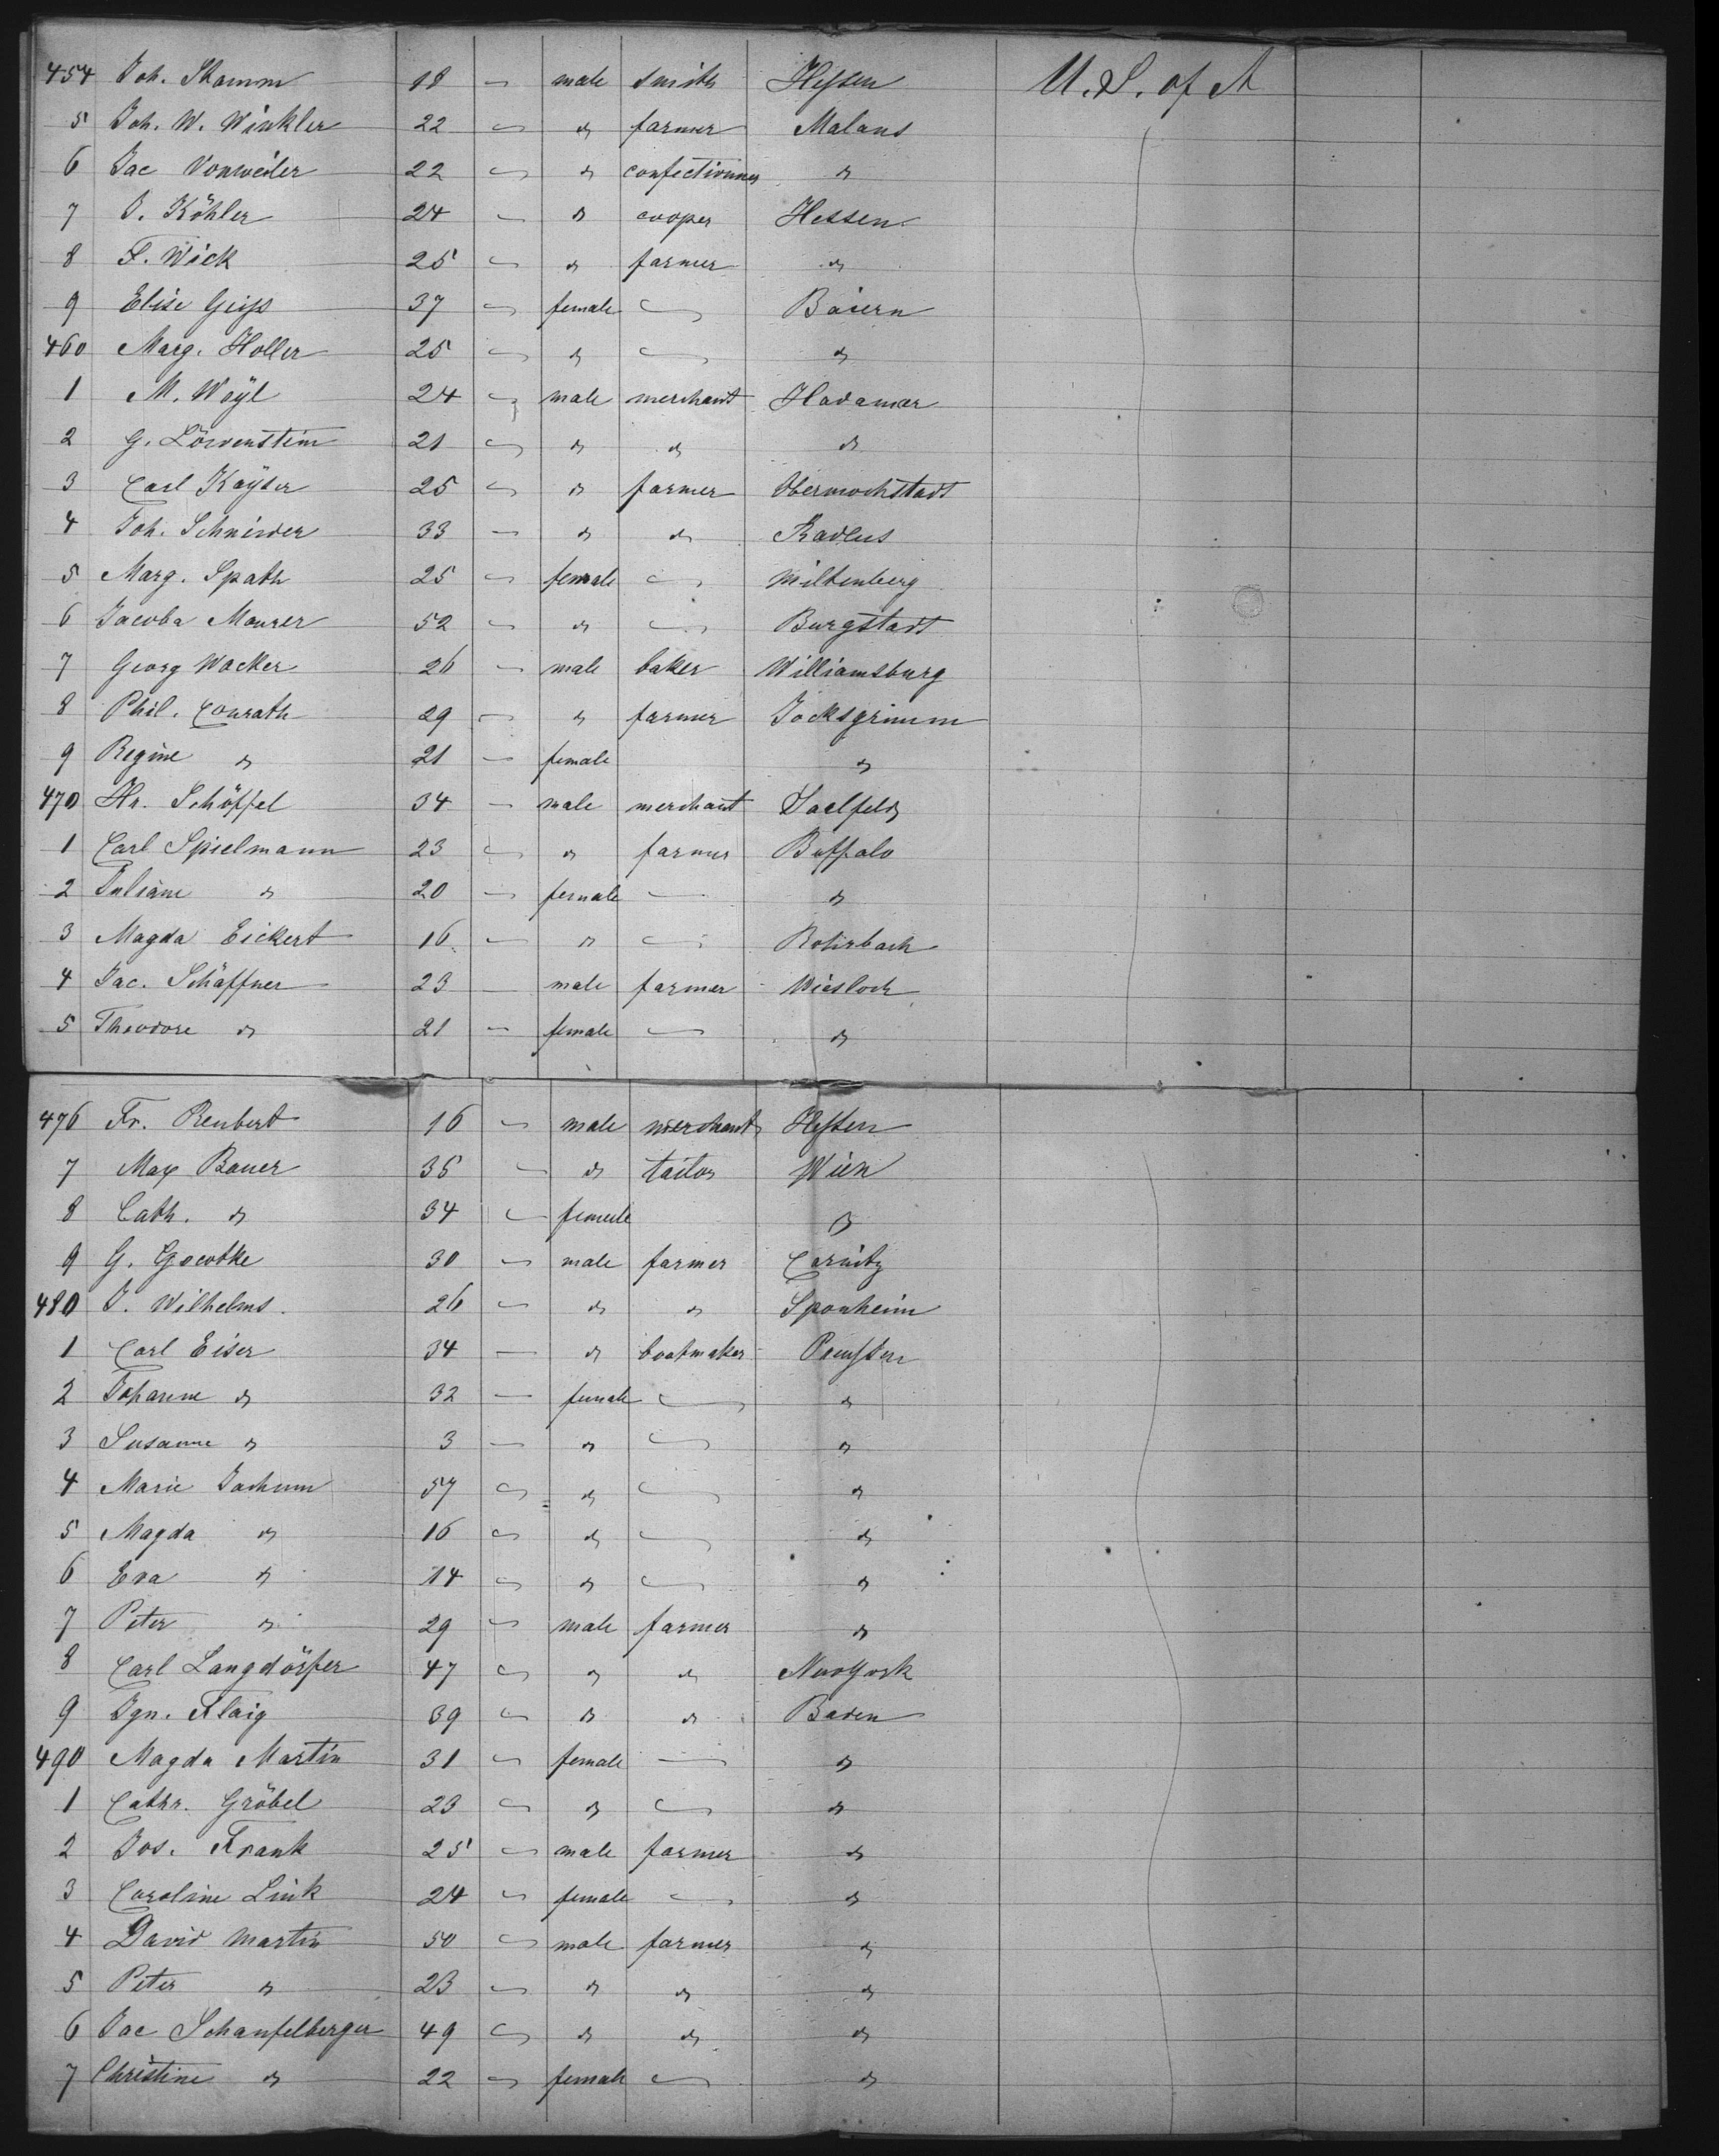 454 Joh. Stamm 18 — male smith Hessen U. S. of A
5 Joh. W. Winkler 22 — " farmer Malans
6 Jac Vonweiler 22 — " confectioner "
7 J. Köhler 24 — " cooper Hessen
8 F. Wick 25 — " farmer "
9 Elise Geiss 37 — female — Baiern
460 Marg. Holler 25 — " — "
1 M. Weyl 24 — male merchant Hadamar
2 G. Löwenstein 21 — " " "
3 Carl Kayser 25 — " farmer Obermockstadt
4 Joh. Schneider 33 — " "
5 Marg. Spath 25 — female — Miltenberg
6 Jacoba Maurer 52 — " — Burgstadt
7 Georg Wacker 26 — male baker Williamsburg
8 Phil. Conrath 29 — " farmer Jocksgrimm
9 Regine " 21 — female "
470 Hr. Schöffel 34 — male merchant Saalfeld
1 Carl Spielmann 23 — " farmer Buffalo
2 Juliane " 20 — female — "
3 Magda Eickert 16 — " — Rohrbach
4 Jac. Schäffner 23 — male farmer Wiesloch
5 Theodore " 21 — female — "
476 Fr. Reubert 16 — male merchant Hessen
7 Max Bauer 35 — " tailor Wien
8 Cath. " 34 — female "
9 G. 30 — male farmer
480 J. Wilhelms. 26 — " " Sponheim
1 Carl Eiser 34 — " bootmaker Preussen
2 Johanne " 32 — female — "
3 Susanne " 3 — " — "
4 Marie Jachum 57 — " — "
5 Magda " 16 — " — "
6 Eva " 14 — " — "
7 Peter " 29 — male farmer "
8 Carl Langdörfer 47 — " " New York
9 Ign. Flaig 39 — " " Baden
490 Magda Martin 31 — female — "
1 Cathr. Gröbel 23 — " — "
2 Jos. Frank 25 — male farmer "
3 Caroline Link 24 — female — "
4 David Martin 50 — male farmer "
5 Peter " 23 — " " "
6 Jac Schaufelberger 49 — " " "
7 Christine " 22 — female — "